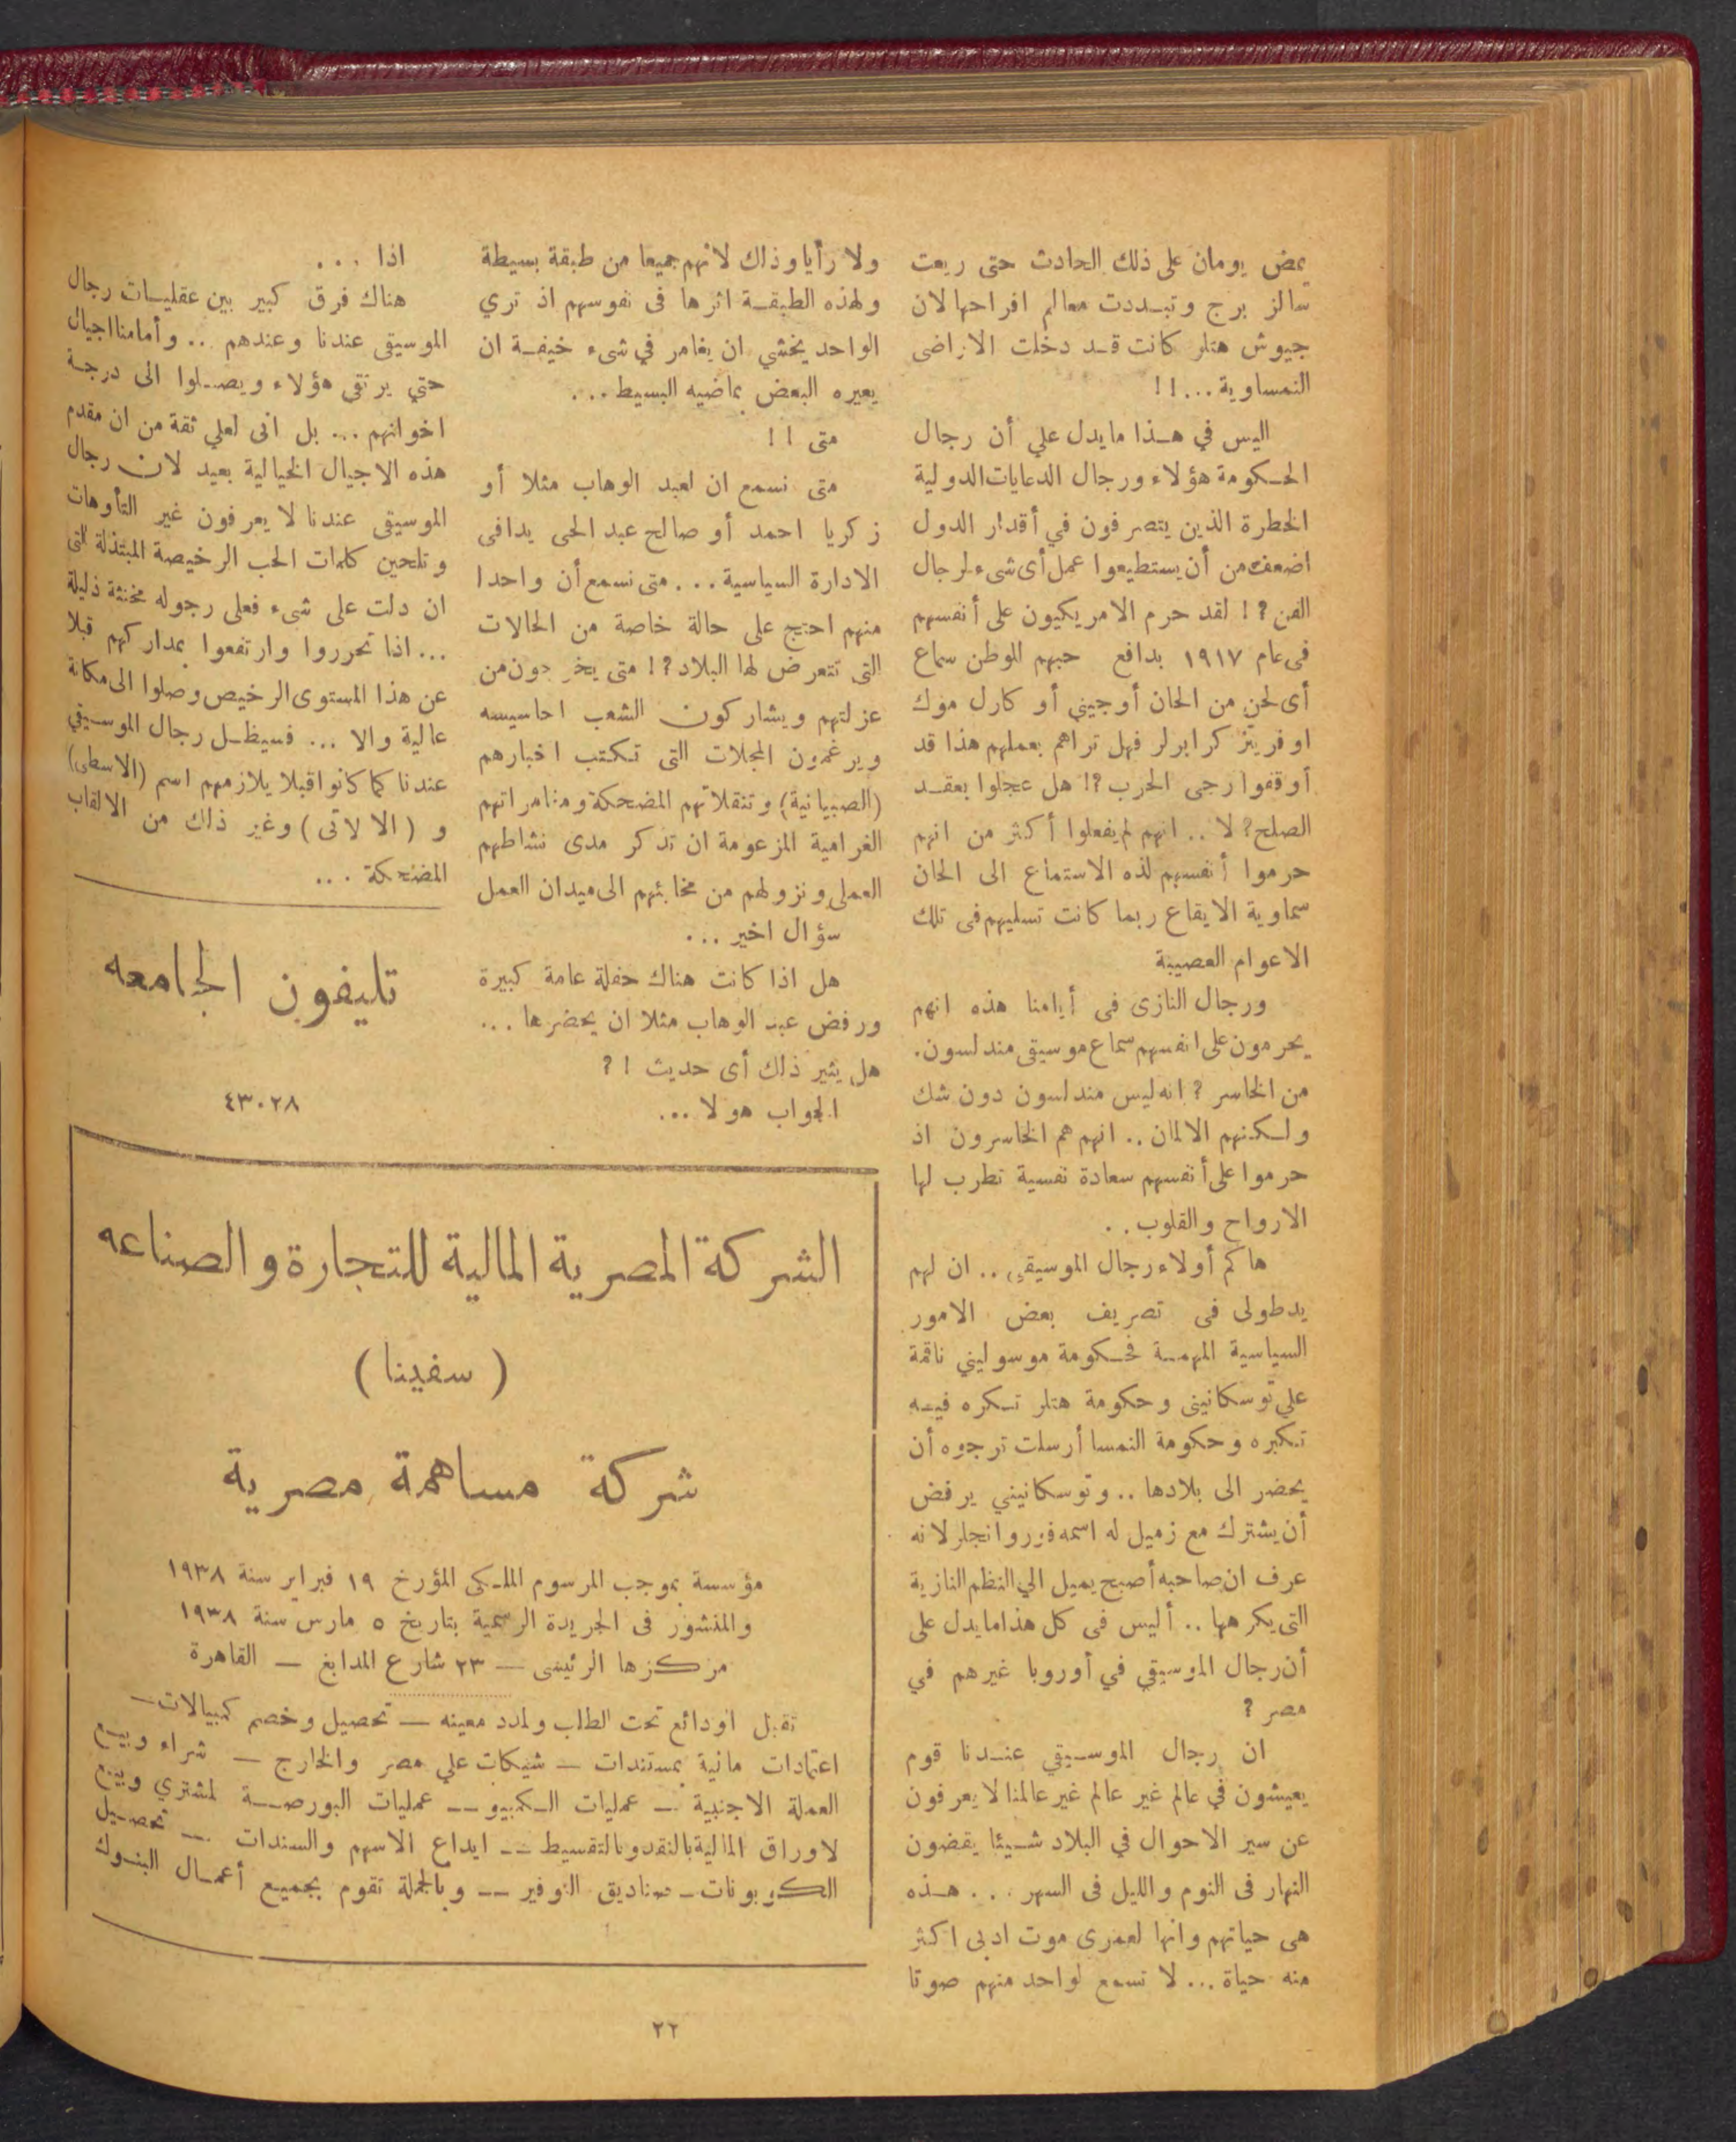 يمض يومان على ذلك الحادث حتى ريعت
سالز برج وتبددت معالم افراحها لان
جيوش هتلر كانت قد دخلت الاراضى
النمساوية ... !!
اليس في هذا مايدل علي أن رجال
الحكومة هؤلاء ورجال الدعايات الدولية
الخطرة الذين يتصرفون في أقدار الدول
اضعف من أن يستطيعوا عمل أى شىء لرجال
الفن ?! لقد حرم الامريكيون على أنفسهم
فى عام ١٩١٧ بدافع حبهم للوطن سماع
أى لحن من الحان أوجيني أو كارل موك
او فريتز كرايرلر فهل تراهم بعملهم هذا قد
أوقفوا رحى الحرب ?! هل عجلوا بعقد
الصلح ? لا .. انهم لم يفعلوا أكثر من انهم
حرموا أنفسهم لذه الاستماع الى الحان
سماوية الايقاع ربما كانت تسليهم فى تلك
الاعوام العصيبة
ورجال النازى فى أيامنا هذه انهم
يحرمون على انفسهم سماع موسيقى مندلسون.
من الخاسر ? انه ليس مندلسون دون شك
ولكنهم الالمان .. انهم هم الخاسرون اذ
حرموا على أنفسهم سعادة نفسية تطرب لها
الارواح والقلوب ..
هاكم أولاء رجال الموسيقى .. ان لهم
يد طولى فى تصريف بعض الامور
السياسية المهمة فحكومة موسولينى ناقمة
علي توسكانينى وحكومة هتلر تكره فيه
تكبره وحكومة النمسا أرسلت ترجوه أن
يحضر الى بلادها .. وتوسكانيني يرفض
أن يشترك مع زميل له اسمه فوروانجلر لانه
عرف ان صاحبه أصبح يميل الي النظم النازية
التى يكرهها .. أليس فى كل هذا مايدل على
أن رجال الموسيقي في أوروبا غيرهم في
مصر ?
ان رجال الموسيقي عندنا قوم
يعيشون في عالم غير عالم غير عالمنا لا يعرفون
عن سير الاحوال في البلاد شيئا يقضون
النهار فى النوم والليل فى السهر ... هذه
هى حياتهم وانها لعمرى موت ادبى اكثر
منه حياة ... لا تسمع لواحد منهم صوتا
ولا رأيا وذاك لانهم جميعا من طبقة بسيطة
ولهذه الطبقة اثرها فى نفوسهم اذ تري
الواحد يخشي ان يغامر في شىء خيفة ان
يعيره البعض بماضيه البسيط ...
متى !!
متى نسمع ان لعبد الوهاب مثلا أو
زكريا احمد أو صالح عبد الحى يدا فى
الادارة السياسية ... متى نسمع أن واحدا
منهم احتج على حالة خاصة من الحالات
التى تتعرض لها البلاد ?! متى يخرجون من
عزلتهم ويشاركون الشعب احاسيسه
ويرغمون المجلات التى تكتب اخبارهم
(الصبيانية) وتنقلاتهم المضحكة ومغامراتهم
الغرامية المزعومة ان تذكر مدى نشاطهم
العملى ونزولهم من مخابئهم الى ميدان العمل
سؤال اخير ...
هل اذا كانت هناك حفلة عامة كبيرة
ورفض عبد الوهاب مثلا ان يحضرها ...
هل يثير ذلك أى حديث !?
الجواب هو لا ...
اذا ...
هناك فرق كبير بين عقليات رجال
الموسيقى عندنا وعندهم .. وأمامنا اجيال
حتي يرتقى هؤلاء ويصلوا الى درجة
اخوانهم ... بل انى لعلي ثقة من ان مقدم
هذه الاجيال الخيالية بعيد لان رجال
الموسيقى عندنا لا يعرفون غير التأوهات
وتلحين كلمات الحب الرخيصة المبتذلة التى
ان دلت على شىء فعلى رجوله مخنثة ذليلة
... اذا تحرروا وارتفعوا بمداركهم قبلا
عن هذا المستوى الرخيص وصلوا الى مكانة
عالية والا ... فسيظل رجال الموسيقي
عندنا كما كانوا قبلا يلازمهم اسم (الاسطى)
و (الالاتى) وغير ذاك من الالقاب
المضحكة ...
تليفون الجامعه
٤٣٠٢٨
الشركة المصرية المالية للتجارة والصناعه
(سفينا)
شركة مساهمة مصرية
مؤسسة بموجب المرسوم الملكى المؤرخ ١٩ فبراير سنة ١٩٣٨
والمنشور فى الجريدة الرسمية بتاريخ ٥ مارس سنة ١٩٣٨
مركزها الرئيسى — ٢٣ شارع المدابغ — القاهرة
تقبل اودائع تحت الطلب ولمدد معينه — تحصيل وخصم كمبيالات —
اعتمادات مالية بمستندات — شيكات علي مصر والخارج — شراء وبيع
العملة الاجنبية — عمليات الكمبيو — عمليات البورصة لمشتري وبيع
لاوراق المالية بالنقد وبالتقسيط — ايداع الاسهم والسندات — تحصيل
الكوبونات — صناديق التوفير — وبالجملة تقوم بجميع أعمال البنوك
٢٢